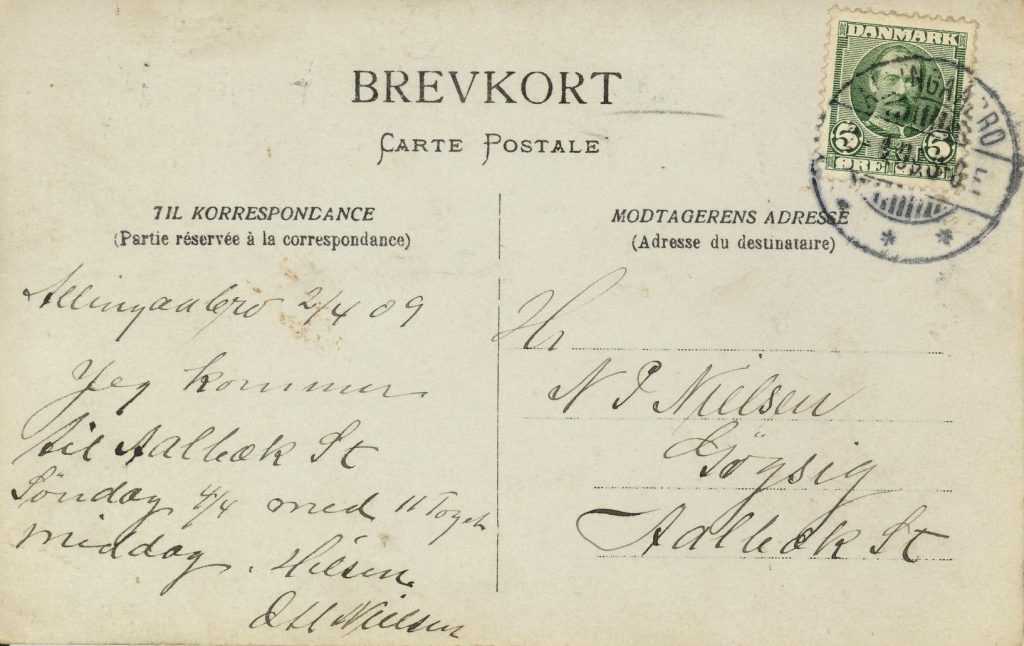 BREVKORT
CARTE POSTALE
DANMARK
5 5
ØRE
TIL KORRESPONDANCE
(Partie réservée à la correspondance)
MODTAGERENS ADRESSE
(Adresse du destinataire)
Allingaabro 2/4 09
Jeg kommer
til Aalbæk St
Söndag 4/4 med 11 Toget
middag. Hilsen
Nielsen
Hr
N P Nielsen
Aalbæk St